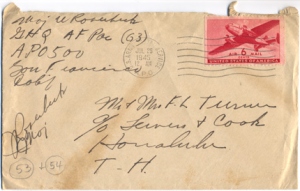 Maj W Rosenlieb
GHQ AF Pac (G3)
APO 500
San Francisco
Calif
AIR MAIL
6
UNITED STATES OF AMERICA
Mr & Mrs F. L. Turner
c/o Lewers & Cook
Honolulu
T. H.
Maj
53 + 54